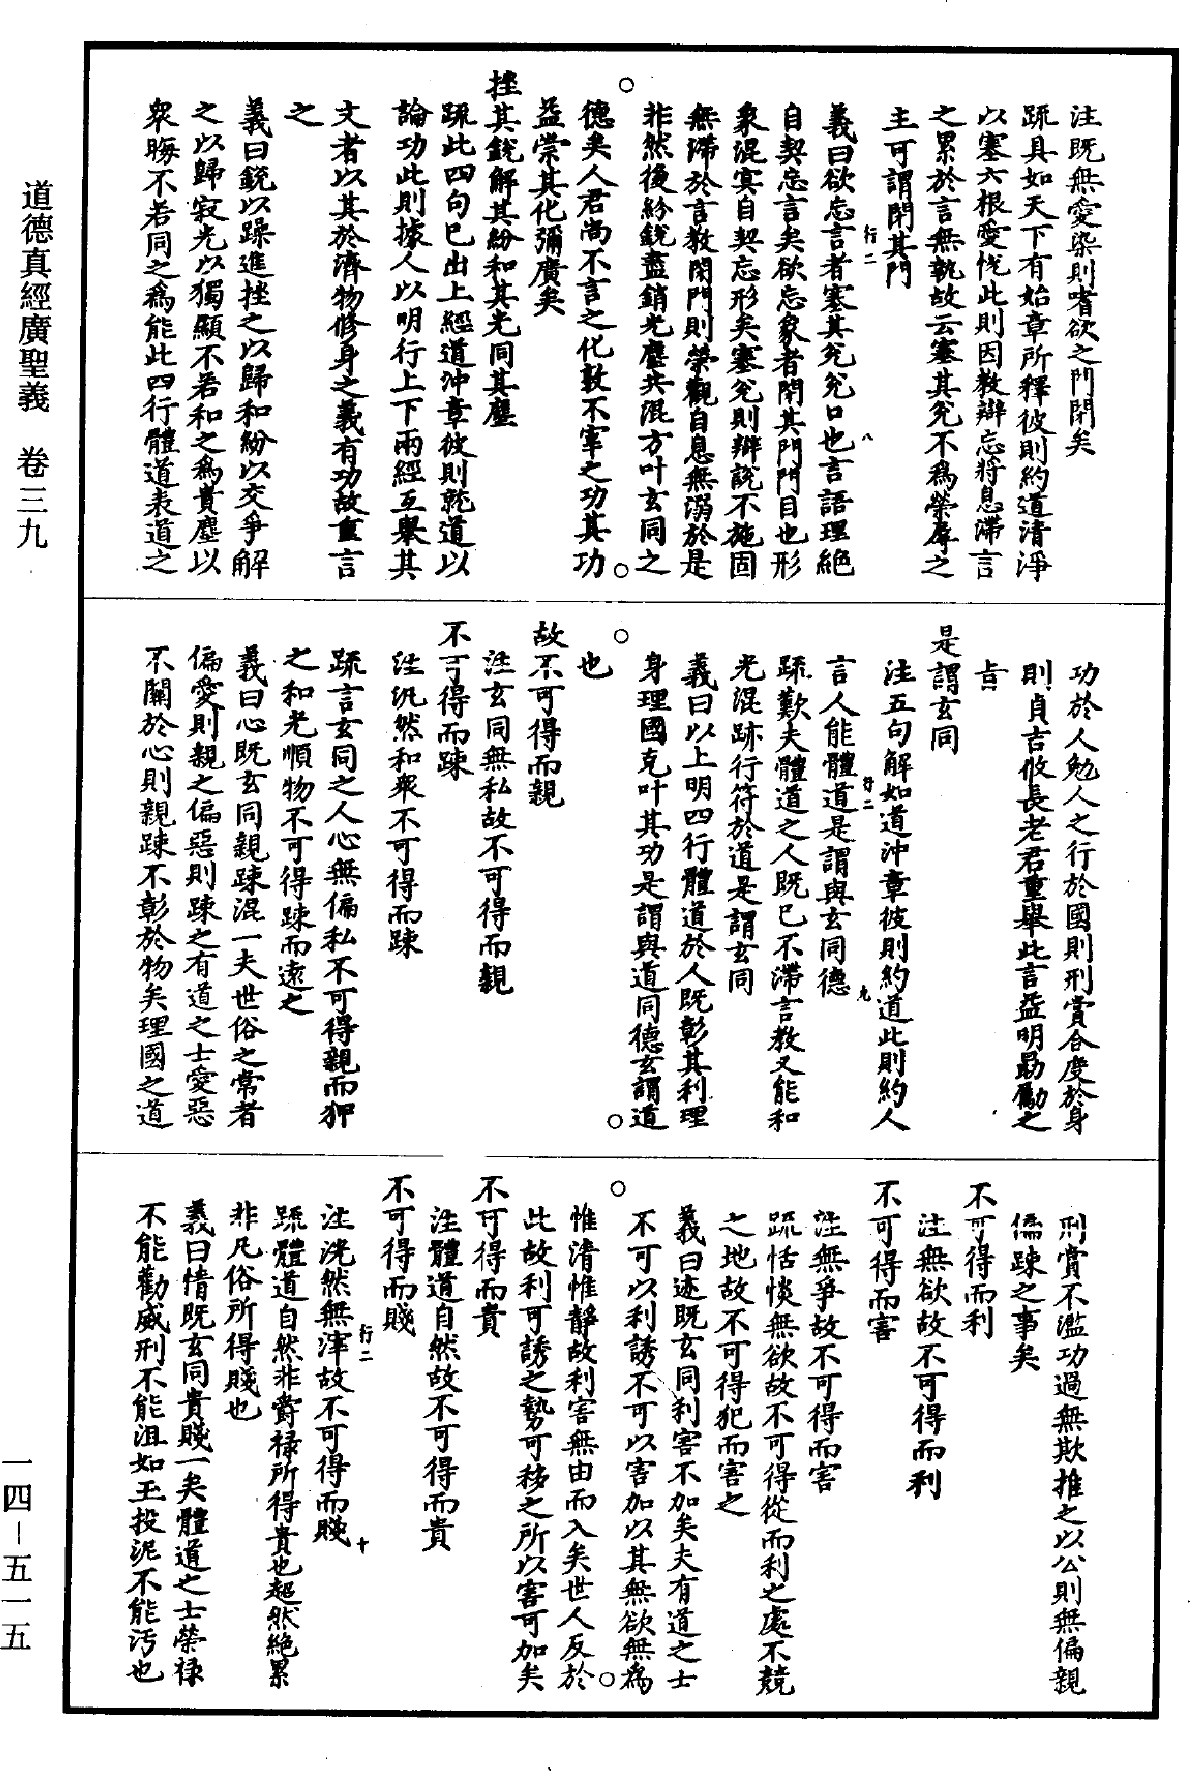 注既無愛染則嗜欲之門閉矣
疏具如天下有始章所釋彼則約道清淨
以塞六根愛悅此則因教辯忘將息滯言
之累於言無執故云塞其兌不為榮辱之
主可謂閉其門
義曰欲忘言者塞其兌兌口也言語理絕
自契忘言矣欲忘象者閉其門門目也形
象混冥自契忘形矣塞兌則辯說不施固
無滯於言教閉門則榮觀自息無溺於是
非然後紛銳盡銷光塵共混方叶玄同之
德矣人君尚不言之化敦不宰之功其功
益崇其化彌廣矣
挫其銳解其紛和其光同其塵
疏此四句已出上經道沖章彼則就道以
論功此則據人以明行上下兩經互舉其
文者以其於濟物修身之義有功故重言
之
義曰銳以躁進挫之以歸和紛以交爭解
之以歸寂光以獨顯不若和之為貴塵以
眾晦不若同之為能此四行體道表道之
功於人勉人之行於國則刑賞合度於身
則貞吉攸長老君重舉此言益明勗勵之
旨
是謂玄同
注五句解如道沖章彼則約道此則約人
言人能體道是謂與玄同德
疏歎夫體道之人既已不滯言教又能和
光混跡行符於道是謂玄同
義曰以上明四行體道於人既彰其利理
身理國克叶其功是謂與道同德玄謂道
也
故不可得而親
注玄同無私故不可得而親
不可得而踈
注汎然和眾不可得而踈
疏言玄同之人心無偏私不可得親而狎
之和光順物不可得踈而遠之
義曰心既玄同親踈混一夫世俗之常者
偏愛則親之偏惡則踈之有道之士愛惡
不關於心則親踈不彰於物矣理國之道
刑賞不濫功過無欺推之以公則無偏親
偏踈之事矣
不可得而利
注無欲故不可得而利
不可得而害
注無爭故不可得而害
疏恬惔無欲故不可得從而利之處不競
之地故不可得犯而害之
義曰迹既玄同利害不加矣夫有道之士
不可以利誘不可以害加以其無欲無為
惟清惟靜故利害無由而入矣世人反於
此故利可誘之勢可移之所以害可加矣
不可得而貴
注體道自然故不可得而貴
不可得而賤
注洸然無滓故不可得而賤
疏體道自然非爵祿所得貴也超然絕累
非凡俗所得賤也
義曰情既玄同貴賤一矣體道之士榮祿
不能勸威刑不能沮如玉投泥不能污也
行二
八
行二
九
行二
十
道德真經廣聖義 卷三九
一四－五一五